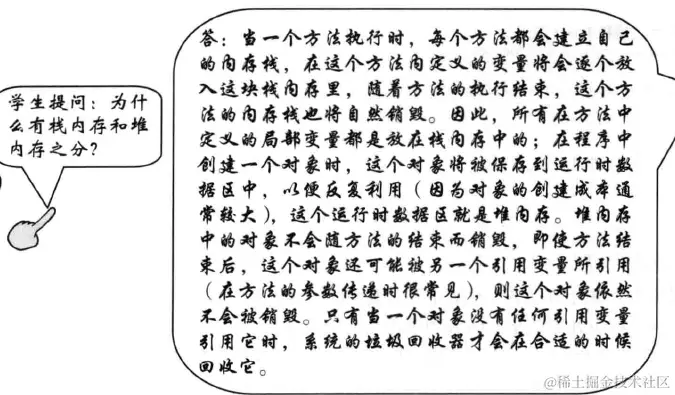 学生提问：为什
么有栈内存和堆
内存之分？
答：当一个方法执行时，每个方法都会建立自己
的内存栈，在这个方法内定义的变量将会逐个放
入这块栈内存里，随着方法的执行结束，这个方
法的内存栈也将自然销毁。因此，所有在方法中
定义的局部变量都是放在栈内存中的；在程序中
创建一个对象时，这个对象将被保存到运行时数
据区中，以便反复利用（因为对象的创建成本通
常较大），这个运行时数据区就是堆内存。堆内存
中的对象不会随方法的结束而销毁，即使方法结
束后，这个对象还可能被另一个引用变量所引用
（在方法的参数传递时很常见），则这个对象依然
不会被销毁。只有当一个对象没有任何引用变量
引用它时，系统的垃圾回收器才会在合适的时候
回收它。
@稀土掘金技术社区